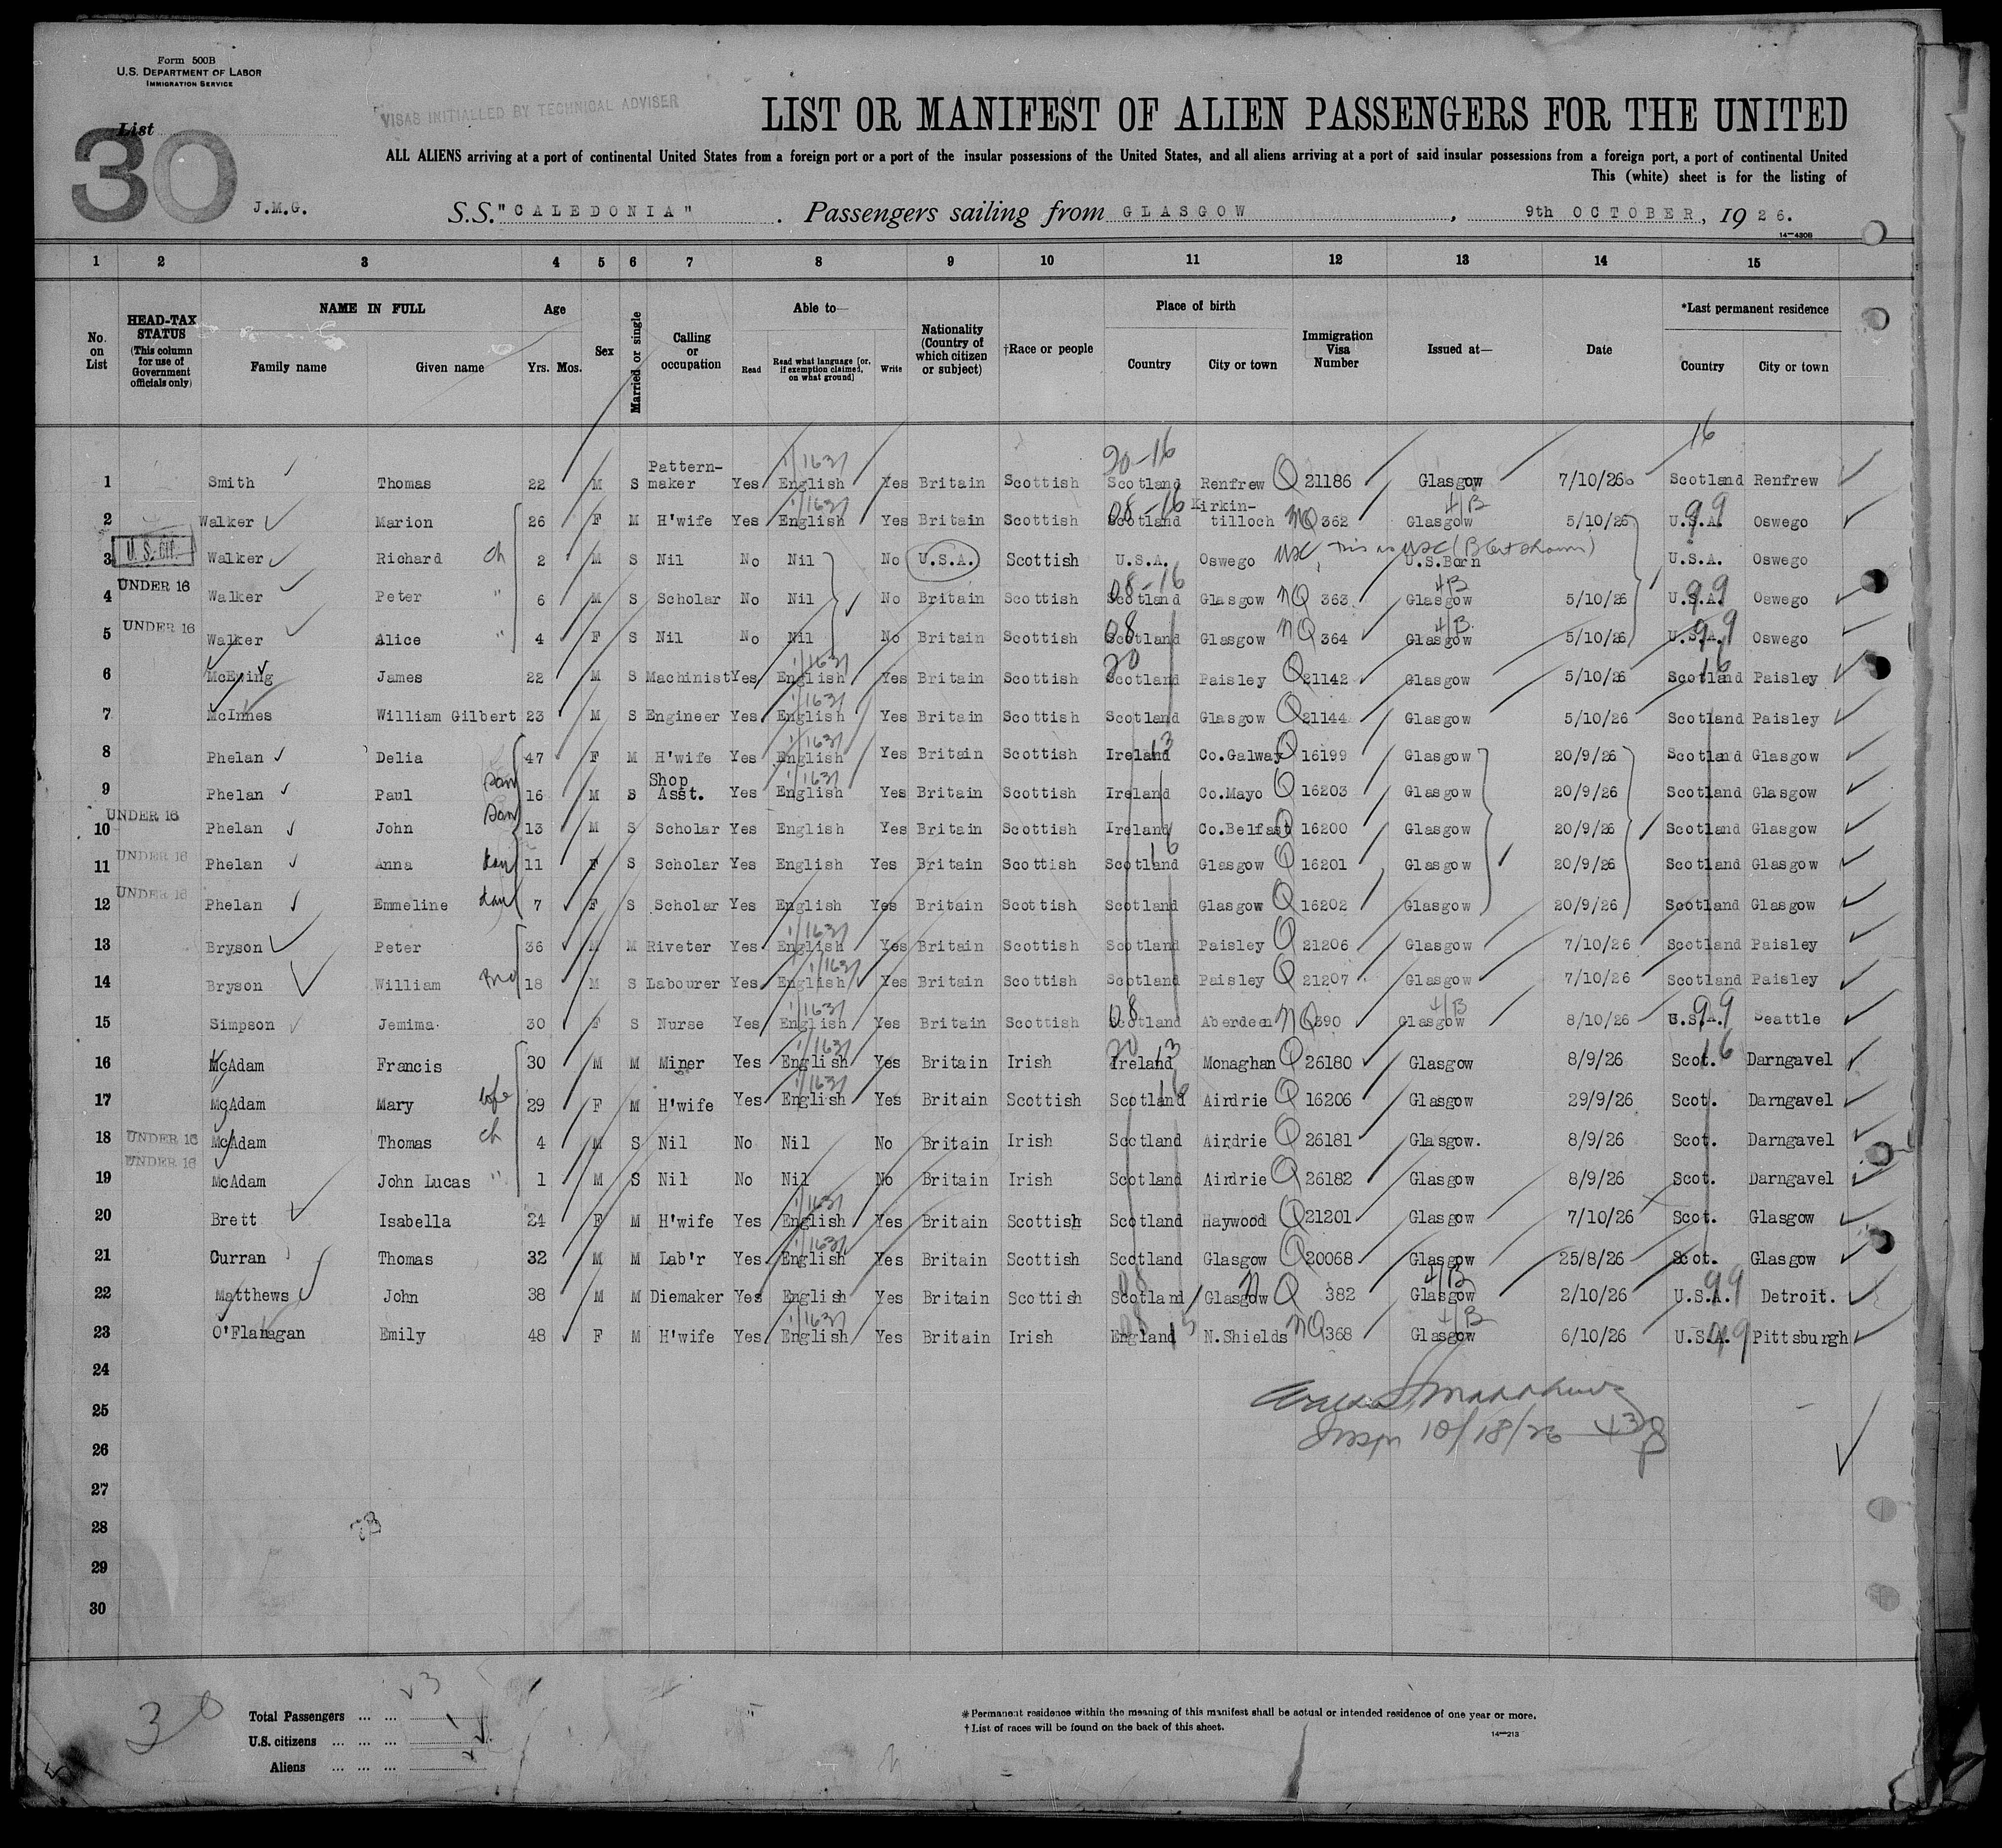 Form 500B
U.S. DEPARTMENT OF LABOR
IMMIGRATION SERVICE
VISAS INITIALLED BY TECHNICAL ADVISER
List
30
J.M.G.
LIST OR MANIFEST OF ALIEN PASSENGERS FOR THE UNITED
ALL ALIENS arriving at a port of continental United States from a foreign port or a port of the insular possessions of the United States, and all aliens arriving at a port of said insular possessions from a foreign port, a port of continental United
This (white) sheet is for the listing of
S.S. "CALEDONIA" . Passengers sailing from GLASGOW , 9th OCTOBER, 1926.
14—430B
1 2 3 4 5 6 7 8 9 10 11 12 13 14 15
No. on List
HEAD-TAX STATUS (This column for use of Government officials only)
NAME IN FULL
Family name Given name
Age
Yrs. Mos.
Sex
Married or single
Calling or occupation
Able to—
Read Read what language [or, if exemption claimed, on what ground] Write
Nationality (Country of which citizen or subject)
†Race or people
Place of birth
Country City or town
Immigration Visa Number
Issued at—
Date
*Last permanent residence
Country City or town
20-16 16
1 Smith Thomas 22 M S Pattern-maker Yes English 1/1631 Yes Britain Scottish Scotland Renfrew Q 21186 Glasgow 7/10/26 Scotland Renfrew
2 Walker Marion 26 F M H'wife Yes English 1/1631 Yes Britain Scottish 08-16 Scotland Kirkin-tilloch NQ 362 Glasgow 4/B 5/10/26 U.S.A. 99 Oswego
U.S. CIT.
3 Walker Richard ch 2 M S Nil No Nil No U.S.A. Scottish U.S.A. Oswego USC This is USC (B Cert shown) U.S.Born U.S.A. Oswego
UNDER 16
4 Walker Peter " 6 M S Scholar No Nil No Britain Scottish 08-16 Scotland Glasgow NQ 363 Glasgow 4/B 5/10/26 U.S.A. 99 Oswego
UNDER 16
5 Walker Alice " 4 F S Nil No Nil No Britain Scottish 08 Scotland Glasgow NQ 364 Glasgow 4/B 5/10/26 U.S.A. 99 Oswego
6 McEwing James 22 M S Machinist Yes English 1/1631 Yes Britain Scottish 20 Scotland Paisley Q 21142 Glasgow 5/10/26 Scotland 16 Paisley
7 McInnes William Gilbert 23 M S Engineer Yes English 1/1631 Yes Britain Scottish Scotland Glasgow Q 21144 Glasgow 5/10/26 Scotland Paisley
8 Phelan Delia 47 F M H'wife Yes English 1/1631 Yes Britain Scottish Ireland 13 Co.Galway Q 16199 Glasgow 20/9/26 Scotland Glasgow
9 Phelan Paul Son 16 M S Shop Asst. Yes English 1/1631 Yes Britain Scottish Ireland Co.Mayo Q 16203 Glasgow 20/9/26 Scotland Glasgow
UNDER 16
10 Phelan John Son 13 M S Scholar Yes English Yes Britain Scottish Ireland Co.Belfast Q 16200 Glasgow 20/9/26 Scotland Glasgow
UNDER 16
11 Phelan Anna dau 11 F S Scholar Yes English Yes Britain Scottish Scotland 16 Glasgow Q 16201 Glasgow 20/9/26 Scotland Glasgow
UNDER 16
12 Phelan Emmeline dau 7 F S Scholar Yes English Yes Britain Scottish Scotland Glasgow Q 16202 Glasgow 20/9/26 Scotland Glasgow
13 Bryson Peter 36 M M Riveter Yes English 1/1631 Yes Britain Scottish Scotland Paisley Q 21206 Glasgow 7/10/26 Scotland Paisley
14 Bryson William Bro 18 M S Labourer Yes English 1/1631 Yes Britain Scottish Scotland Paisley Q 21207 Glasgow 7/10/26 Scotland Paisley
15 Simpson Jemima 30 F S Nurse Yes English 1/1631 Yes Britain Scottish 08 Scotland Aberdeen NQ 390 Glasgow 4/B 8/10/26 U.S.A. 99 Seattle
16 McAdam Francis 30 M M Miner Yes English 1/1631 Yes Britain Irish 20 Ireland 13 Monaghan Q 26180 Glasgow 8/9/26 Scot. 16 Darngavel
17 McAdam Mary wife 29 F M H'wife Yes English 1/1631 Yes Britain Scottish Scotland 16 Airdrie Q 16206 Glasgow 29/9/26 Scot. Darngavel
UNDER 16
18 McAdam Thomas ch 4 M S Nil No Nil No Britain Irish Scotland Airdrie Q 26181 Glasgow. 8/9/26 Scot. Darngavel
UNDER 16
19 McAdam John Lucas " 1 M S Nil No Nil No Britain Irish Scotland Airdrie Q 26182 Glasgow 8/9/26 Scot. Darngavel
20 Brett Isabella 24 F M H'wife Yes English 1/1631 Yes Britain Scottish Scotland Haywood Q 21201 Glasgow 7/10/26 Scot. Glasgow
21 Curran Thomas 32 M M Lab'r Yes English 1/1631 Yes Britain Scottish Scotland Glasgow Q 20068 Glasgow 25/8/26 Scot. Glasgow
22 Matthews John 38 M M Diemaker Yes English Yes Britain Scottish 08 Scotland Glasgow NQ 382 Glasgow 4/B 2/10/26 U.S.A. 99 Detroit.
23 O'Flanagan Emily 48 F M H'wife Yes English 1/1631 Yes Britain Irish 08 England 15 N.Shields NQ 368 Glasgow 4/B 6/10/26 U.S.A. 99 Pittsburgh
24
25
Insp 10/18/26
26
27
28
29
30
30
Total Passengers ... ...
U.S. citizens ... ... ...
Aliens ... ... ...
*Permanent residence within the meaning of this manifest shall be actual or intended residence of one year or more.
†List of races will be found on the back of this sheet.
14—213